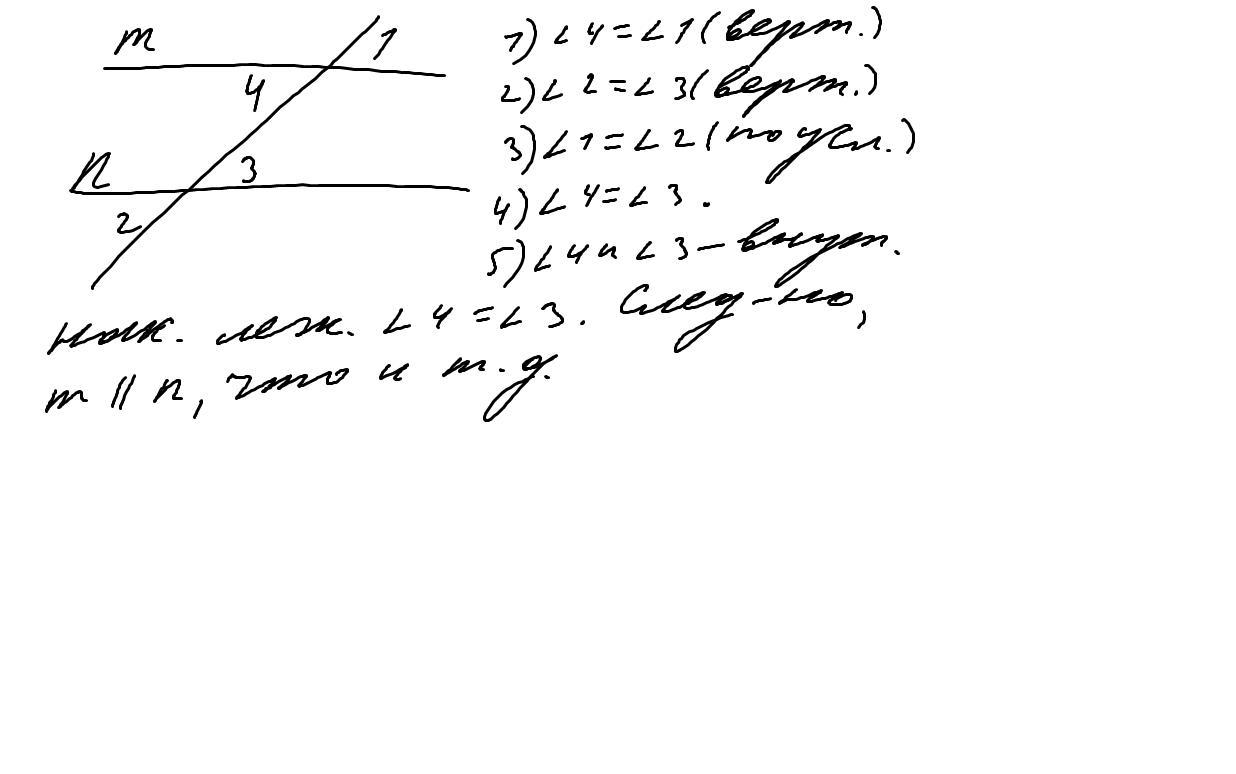 m
1
4
n
3
2
1) ∠4=∠1(верт.)
2)∠2=∠3(верт.)
3)∠1=∠2(по усл.)
4)∠4=∠3.
5)∠4и∠3-внут.
нак. леж. ∠4=∠3. След-но,
m || n, что и т.д.